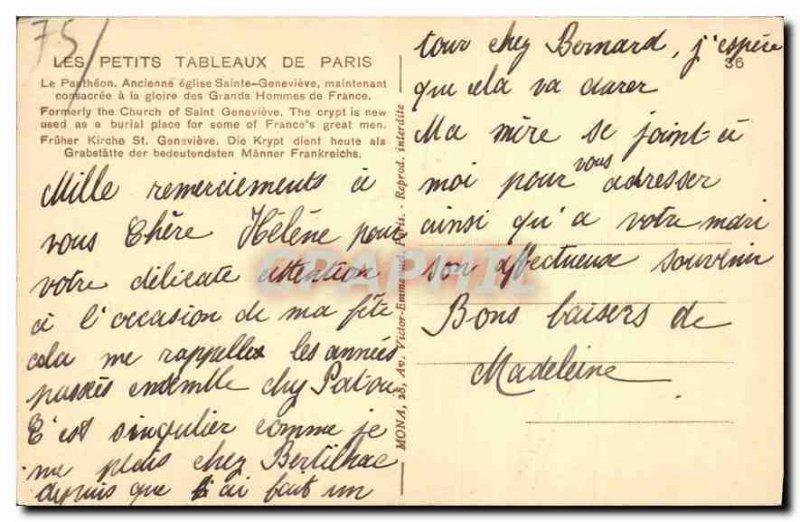 75/
LES PETITS TABLEAUX DE PARIS
Le Panthéon. Ancienne église Sainte-Geneviève, maintenant
consacrée à la gloire des Grands Hommes de France.
Formerly the Church of Saint Geneviève. The crypt is new
used as a burial place for some of France's great men.
Früher Kirche St. Geneviève. Die Krypt dient heute als
Grabstätte der bedeutendsten Männer Frankreichs.
Mille remerciements à
vous Chère Hélène pour
votre délicate attention
à l'occasion de ma fête
cela me rappelle les années
passées ensemble chez Patou
C'est singulier comme je
me plais chez
depuis que j'ai fait un
MONA, 28, Av. Victor-Emmanuel, Paris. - Reprod. interdite
36
tour chez Bernard, j'espère
que cela va durer
Ma mère se joint à
moi pour vous adresser
ainsi qu'a votre mari
son affectueux souvenir
Bons baisers de
Madeleine